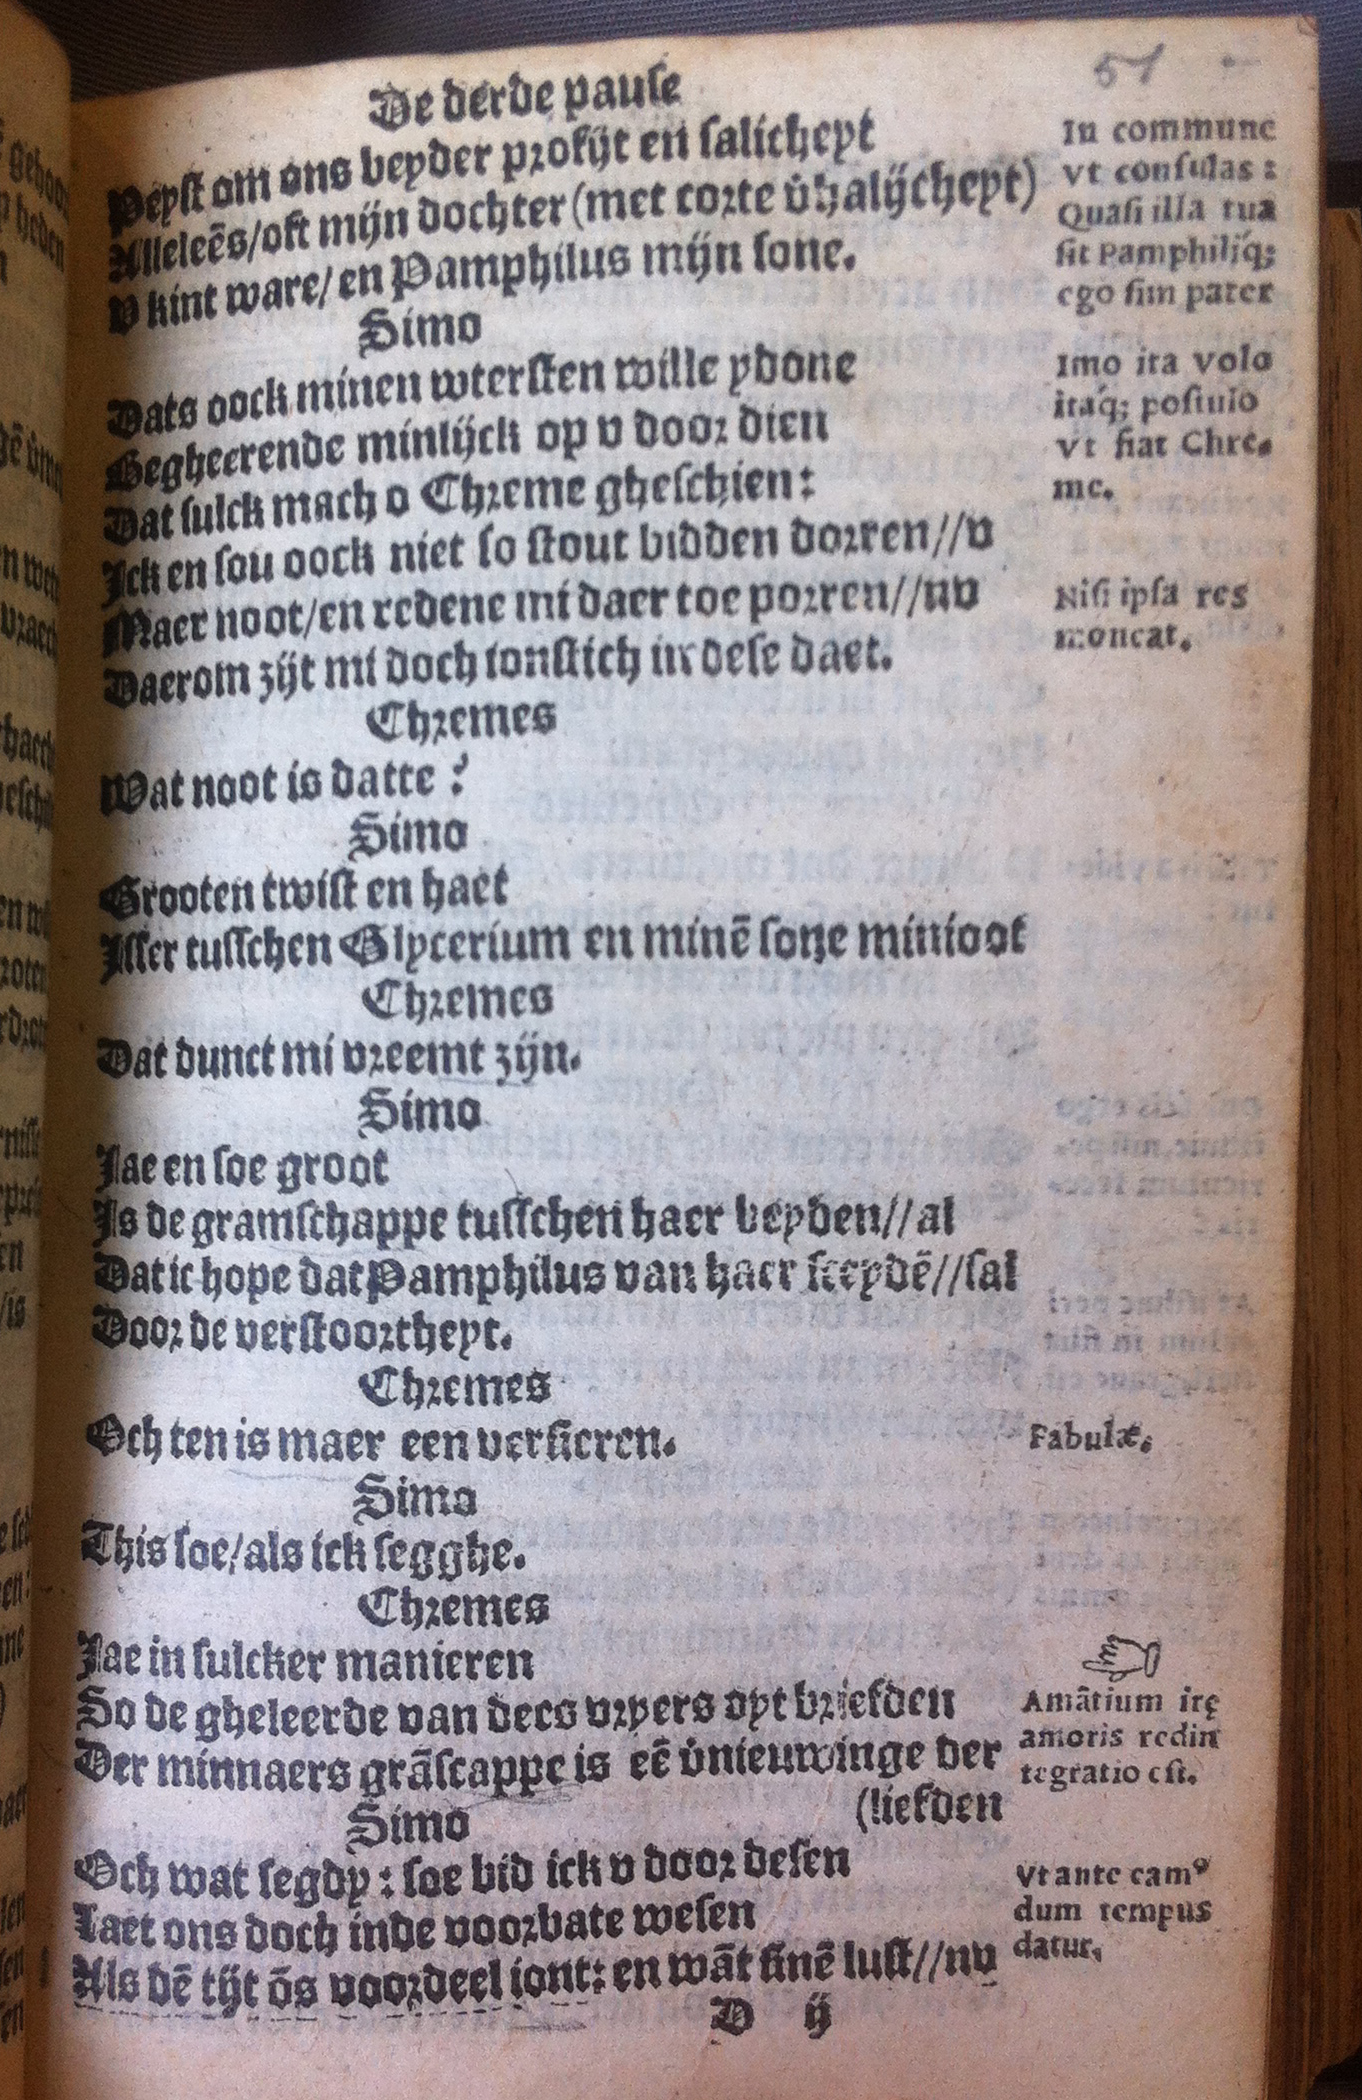 De derde pause
51
Peyst om ons beyder profijt en salicheyt
Alleleēs/oft mijn dochter (met corte v̊halijcheyt)
V kint ware/ en Pamphilus mijn sone.
In commune
vt consulas :
Quasi illa tua
sit Pamphiliq́;
ego sim pater
Simo
Dats oock minen wtersten wille ydone
Begheerende minlijck op v door dien
Dat sulck mach o Chreme gheschien:
Ick en sou oock niet so stout bidden dorren//v
Maer noot/en redene mi daer toe porren//nv
Daerom zijt mi doch ionstich in dese daet.
Imo ita volo
itaq́; postulo
vt fiat Chre-
me.
Nisi ipsa res
moneat.
Chremes
Wat noot is datte ?
Simo
Grooten twist en haet
Isser tusschen Glycerium en minē sone minioot
Chremes
Dat dunct mi vreemt zijn.
Simo
Jae en soe groot
Is de gramschappe tusschen haer beyden//al
Dat ic hope dat Pamphilus van haer sceydē//sal
Door de verstoortheyt.
Chremes
Och ten is maer een versieren.
Fabulæ.
Simo
This soe/als ick segghe.
Chremes
Jae in sulcker manieren
So de gheleerde van decs vrpers vpt briefden
Der minnaers grāscappe is eē v̊nieuwinge der
(liefden
Amātium irę
amoris redin
tegratio est.
Simo
Och wat segdy : soe bid ick v door desen
Laet ons doch inde voorbate wesen
Als dē tijt ōs voordeel iont: en wāt sinē lust//nv
Vt ante eam⁹
dum tempus
datur.
D ij